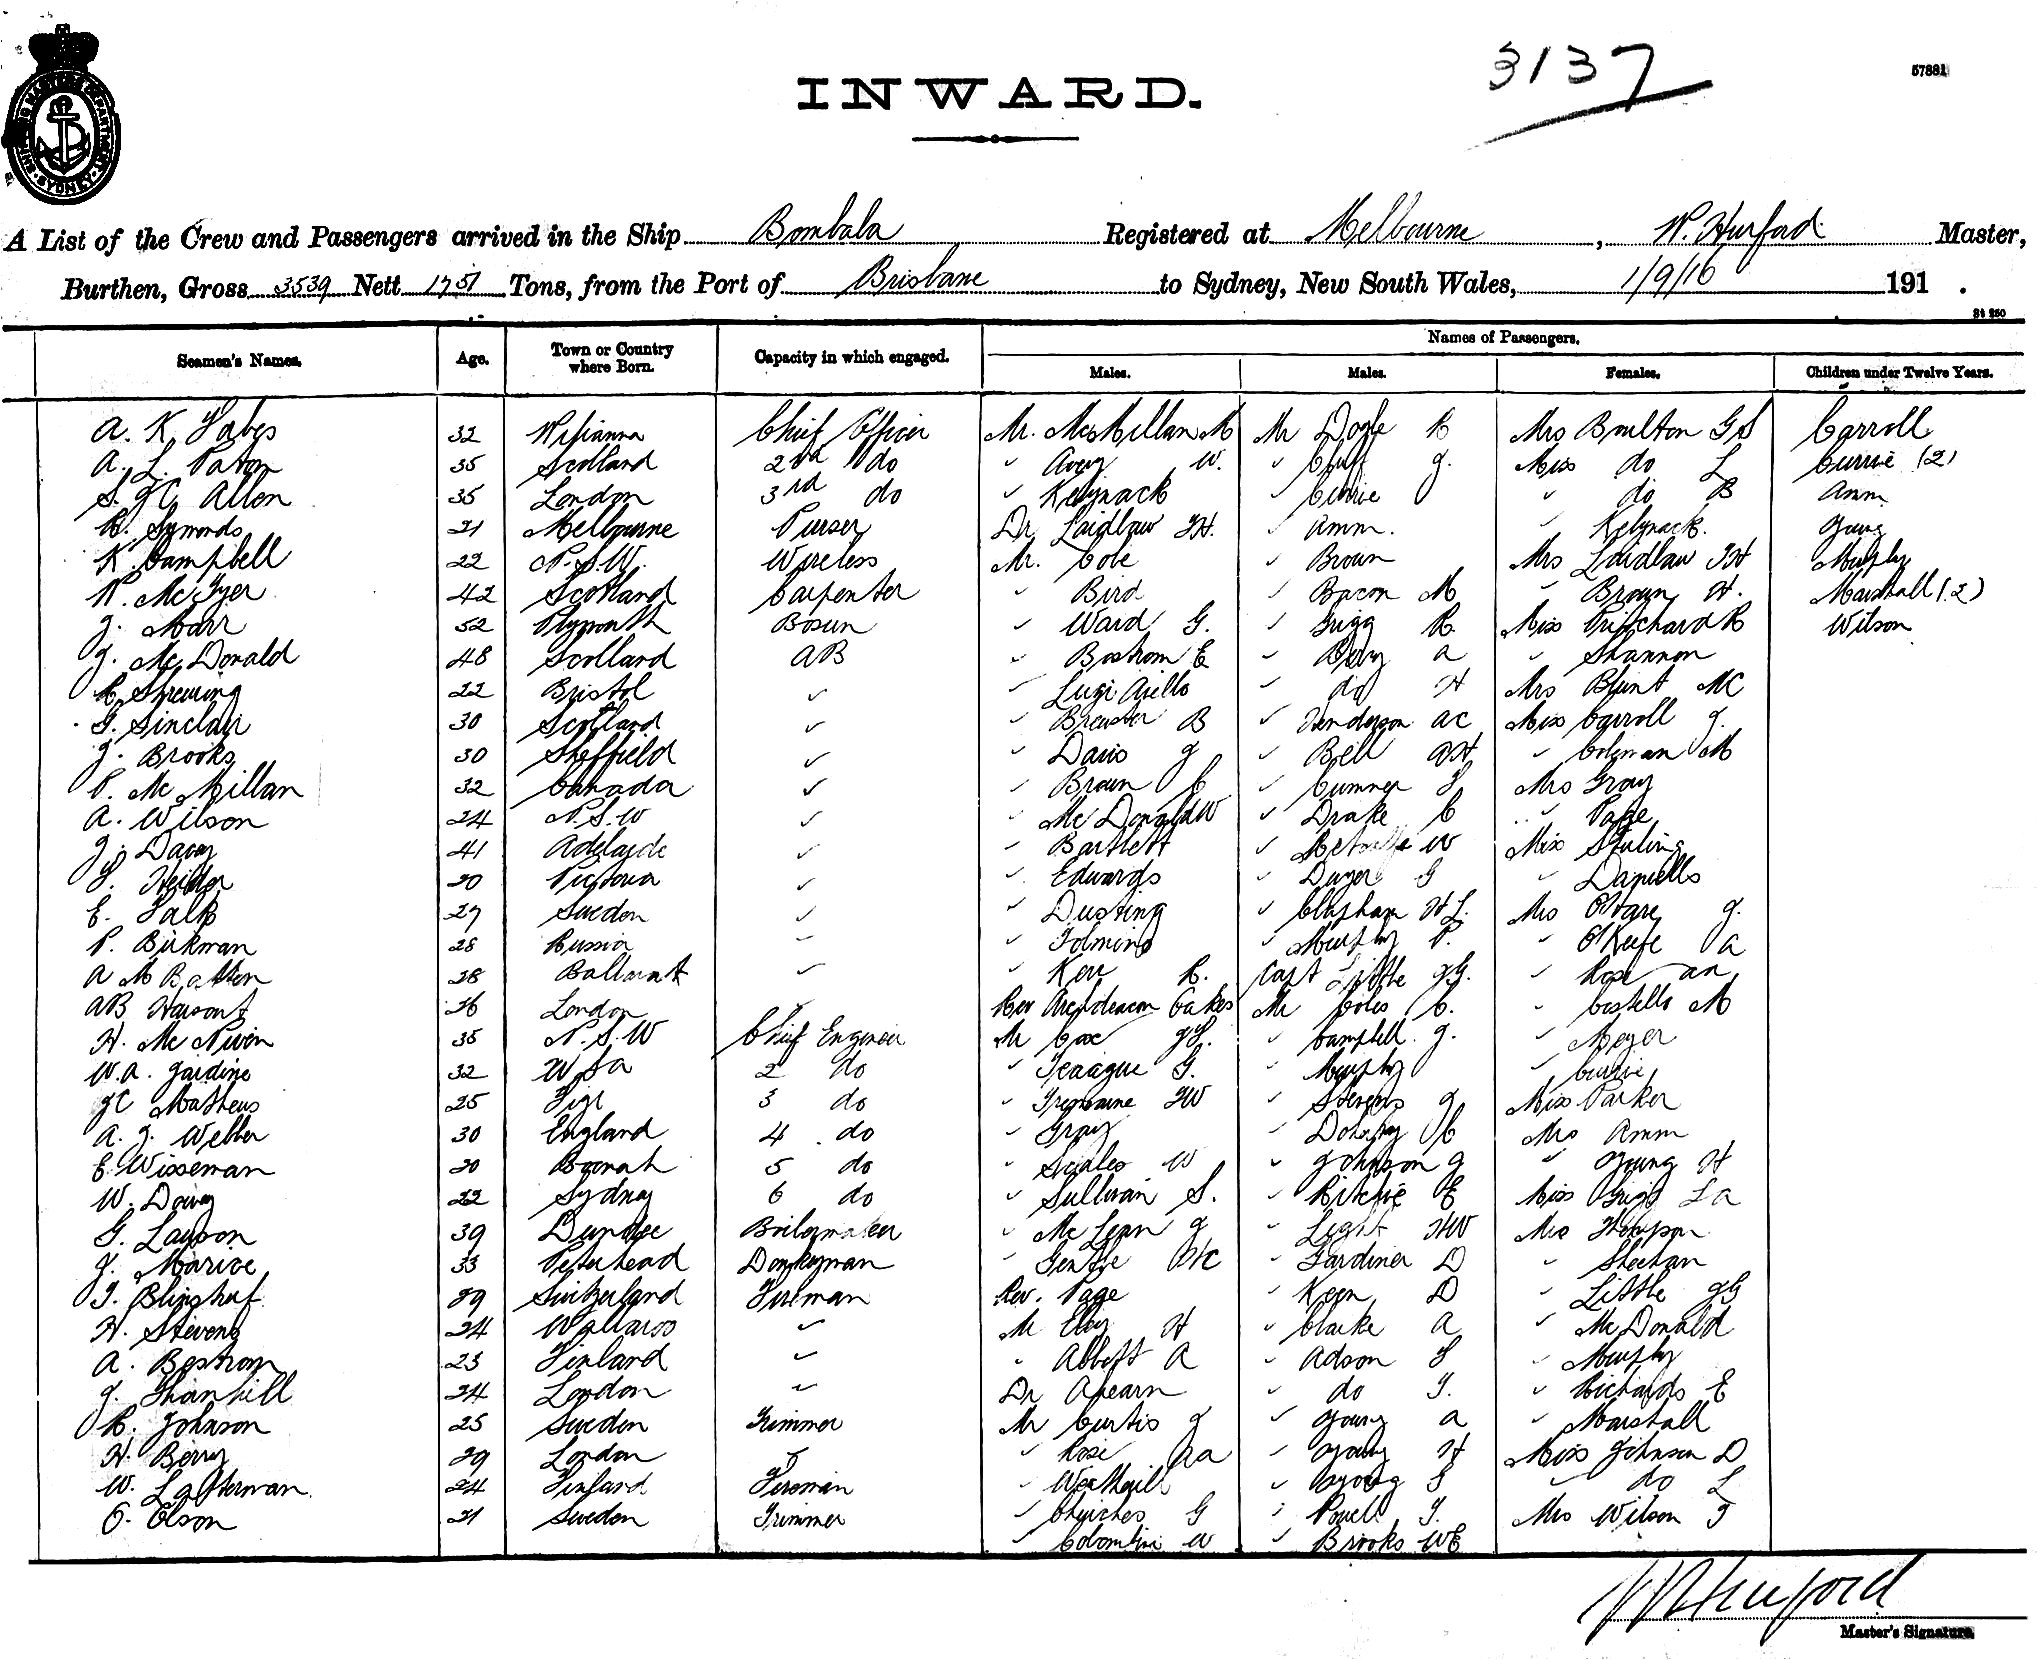 3137
57881
INWARD.
SHIPPING MASTERS DEPARTMENT SYDNEY
A List of the Crew and Passengers arrived in the Ship Bombala Registered at Melbourne, W. Hurford Master,
Burthen, Gross 3539 Nett 1751 Tons, from the Port of Brisbane to Sydney, New South Wales, 1/9/16 191 .
St 250
Names of Passengers.
Seamen's Names. Age. Town or Country where Born. Capacity in which engaged. Males. Males. Females. Children under Twelve Years.
A. K. 32 Chief Officer Mr. McMillan M Mr Dogle R Mrs Boulton G S Carroll
A. L. Paton 35 Scotland 2nd do " Avery W. " Cluff J. Miss do L Currie (2)
S. J C Allen 35 London 3rd do " Kelynack " Currie " do B Amm
R. Symonds 21 Melbourne Purser Dr Laidlaw J H. " Amm. " Kelynack. Young
K. Campbell 22 N.S.W. Wireless Mr. Cole " Brown Mrs Laidlaw J H Murphy
R. Mc Tyer 42 Scotland Carpenter " Bird " Bacon M " Brown H. Marshall (2)
J. Marr 52 Plymouth Bosun " Ward G. " Grigg R. Miss Pritchard R Wilson
J. Mc Donald 48 Scotland AB " Bostrom E " Berg A " Shannon
R. Shrewing 22 Bristol " " Luzi Aiello " do H Mrs Blunt MC
G. Sinclair 30 Scotland " " Brewster B " Henderson A C Miss Carroll J.
J. Brooks 30 Sheffield " " Davis J " Bell A H " Coleman M
P. Mc Millan 32 Canada " " Brown C " Cumner S Mrs Gray
A. Wilson 24 N.S.W " " Mc Donald W " Drake C " Page
J. Davey 41 Adelaide " " Bartlett " Metcalfe W Miss Stuling
S. 20 Victoria " " Edwards " Dwyer G " Daniells
E. Falk 27 Sweden " " Dusting " Clapham H L. Mrs O'Hare J.
P. Birkman 28 Russia " " " Murphy P. " O'Keefe A
A M Batten 28 Ballarat " " Kerr R. Capt Little J G. " Rose A A
AB 26 London " Rev Archdeacon Oakes Mr Coles C. " Costello M
H. Mc Niven 35 N.S.W Chief Engineer Mr Cox J S. " Campbell. J. " Meyer
W. A. Jardine 32 W S A 2 do " Teague G. " Murphy " Currie
J C Mathews 25 Fiji 3 do " Tremaine J W " Stevens J Miss Parker
A. J. Webber 30 England 4 do " Gray " Doherty C Mrs Amm
E. Wisseman 20 Boonah 5 do " Scales W " Johnson J " Young H
W. Davey 22 Sydney 6 do " Sullivan S. " Ritchie E Miss Grigg L A
G. Lawson 39 Dundee Boilermaker " Mc Lean J " Light H W Mrs Thompson
J. Marioe 33 Peterhead Donkeyman " Gentle " Gardiner D " Sheehan
J. 29 Switzerland Fireman Rev. Page " Keen D " Little J G
H. Stevens 24 Wallaroo " Mr Eley H " Clarke A " Mc Donald
A. Bostrom 23 Finland " " Abbott A " Adson S " Murphy
J. Thornhill 24 London " Dr Ahearn " do J. " Richards E
R. Johnson 25 Sweden Trimmer Mr Curtis J " Young A " Marshall
H. Berry 29 London " " Rose A A " Young H Miss Johnson D
W. Latterman 24 Finland Fireman " Weatherill " Young S " do L
O. Olson 21 Sweden Trimmer " Churches G " Powell J. Mrs Wilson J
" W " Brooks W E
W Hurford
Master's Signature.